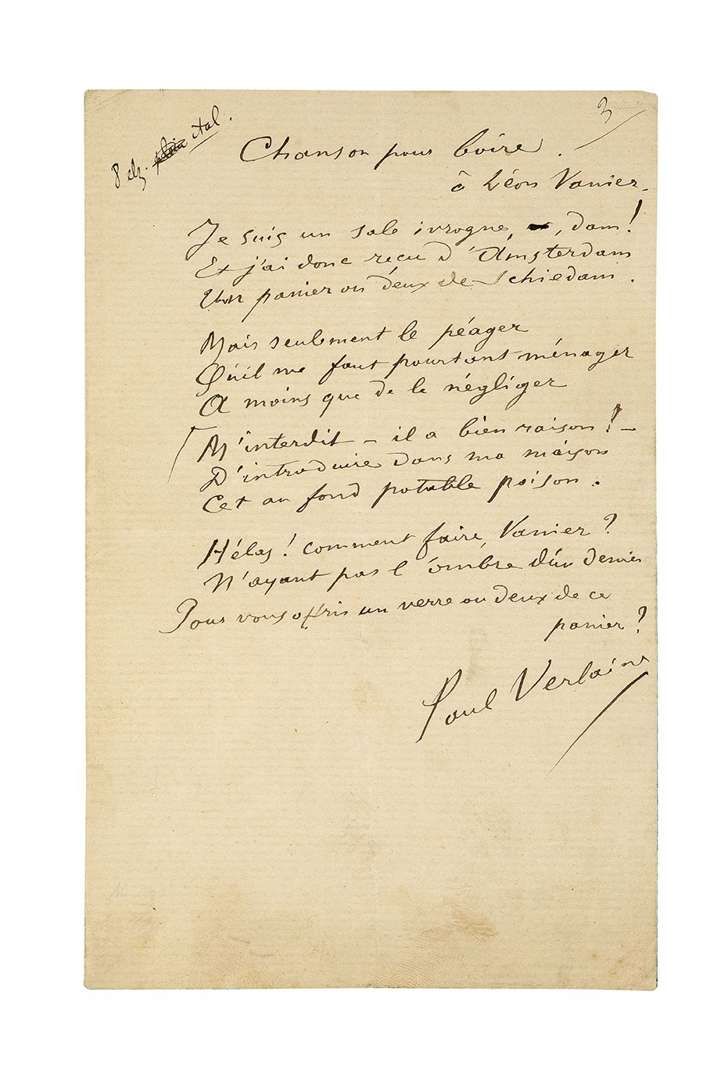 3
8 elz. ital.
Chanson pour boire.
à Léon Vanier.
Je suis un sale ivrogne, dam!
Et j'ai donc reçu d'Amsterdam
Un panier ou deux de Schiedam.
Mais seulement le péager
Qu'il me faut pourtant ménager
A moins que de le négliger
M'interdit – il a bien raison! –
D'introduire dans ma maison
Cet au fond potable poison.
Hélas! comment faire, Vanier?
N'ayant pas l'ombre d'un denier
Pour vous offrir un verre ou deux de ce
panier?
Paul Verlaine